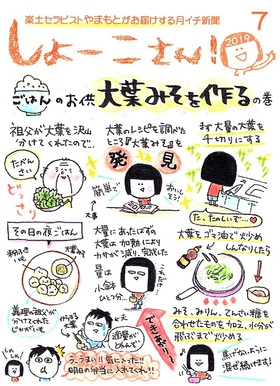 楽土セラピストやまもとがお届けする月イチ新聞
しょーこさん!
2019
7
ごはんのお供 大葉みそを作るの巻
祖父が大葉を沢山
分けてくれたので…
たべんさい
どっさり
大葉のレシピを調べた
ところ『大葉みそ』を
発見
簡単で
おいしそう!
大葉
まず大量の大葉を
千切りにする
ザリ
ザリ
た、たのしいぞ…♥
その日の夜ごはん
義理の祖父が
分けてくれた
じゃがいも
大量にあったはずの
大葉は加熱により
カサが減り、完成した
量は
小鉢
ひとつ分…
できあがり〜
大葉をゴマ油で炒め
しんなりしたら
みそ、みりん、てんさい糖を
合わせたものを加え、水分が
飛ぶまで炒める
焦げないように
混ぜ続けます!
うっうまい!!気に入った!!
明日の弁当に入れてくれ!!